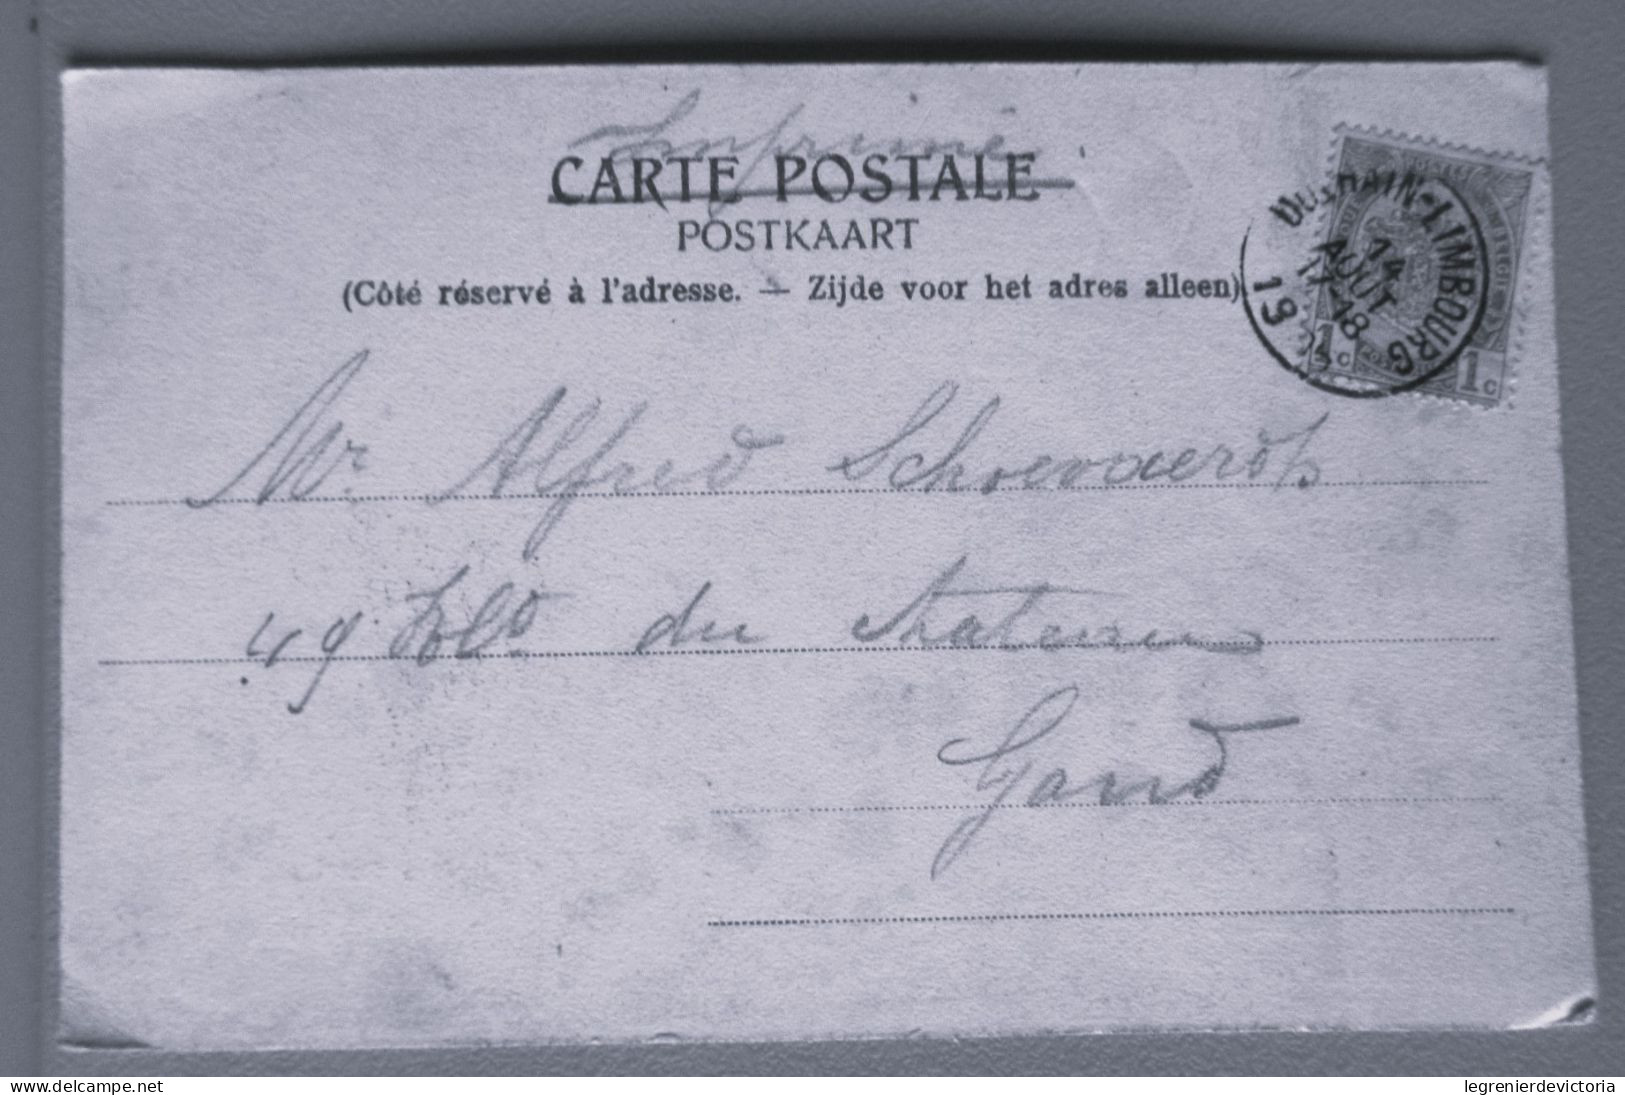 Imprimé
CARTE POSTALE
POSTKAART
(Côté réservé à l'adresse. — Zijde voor het adres alleen)
DOLHAIN-LIMBOURG
14
AOUT
17-18
19
1c 1c
Mr. Alfred Schoevaerdts
49 du
Gand
delcampe.net
legrenierdevictoria